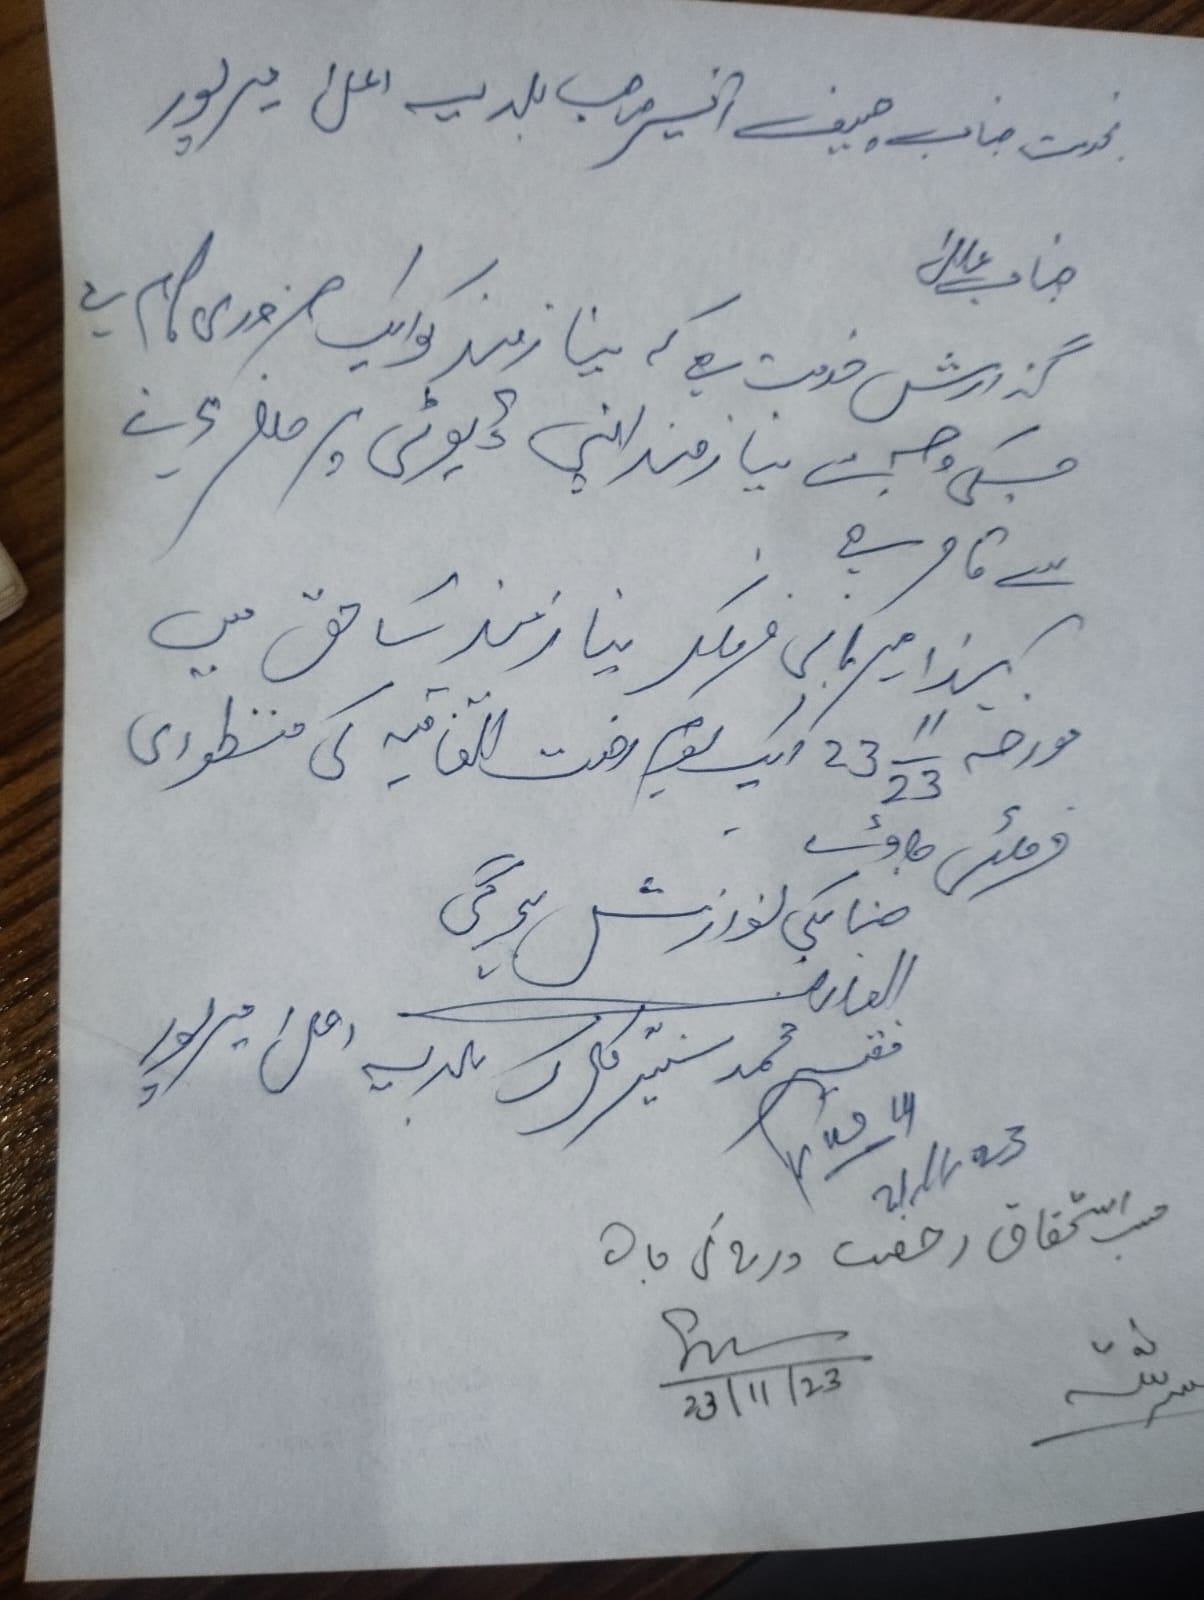 بخدمت جناب چیف آفیسر صاحب بلدیہ اعلیٰ میرپور
جناب عالیٰ
گزارش خدمت ہے کہ نیازمند کو ایک ضروری کام ہے
جسکی وجہ سے نیازمند اپنی ڈیوٹی پر حاضر ہونے
سے قاصر ہے
لہذا مہربانی فرماکر نیازمند کے حق میں
مورخہ 23 11/23 ایک یوم رخصت اتفاقیہ کی منظوری
فرمائی جاوئے
جناب کی نوازش ہو گی
العارض
فقیر محمد سینئر کلرک بلدیہ اعلیٰ میرپور
حسب استحقاق رخصت درج کی جائے
23/11/23
سررشتہ